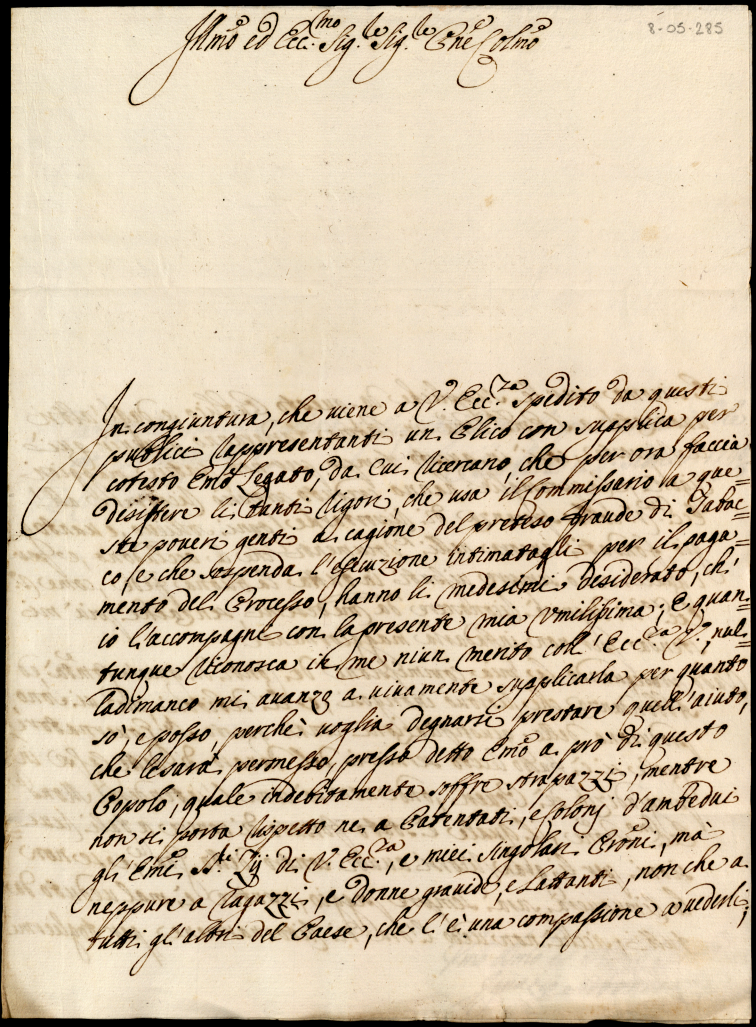 8-05-285
Illmo ed Ecc.mo Sig.re Sig.re Pne Colmo
In congiuntura, che viene a V. Ecc.za spedito da questi
publici Rappresentanti un Plico con supplica per
cotesto Emo Legato, da cui ricercano che per ora faccia
desistere li tanti rigori, che usa il Commissario a que=
ste poveri genti a cagione del preteso fraude di Tabac=
co, e che sospenda l'esecuzione intimatagli per il paga=
mento del Processo, hanno li medesimi desiderato, ch'
io l'accompagni con la presente mia umilissima; E quan=
tunque riconosca in me niun merito coll' Ecc.a V., nul=
ladimanco mi avanzo a vivamente supplicarla per quanto
sò, e posso, perchè voglia degnarsi prestare quell'aiuto,
che le sarà permesso presso detto Emo a prò di questo
Popolo, quale indebitamente soffre strapazzi, mentre
non si porta rispetto ne a Patentati, e Coloni d'ambedui
gl'Emi SS.ri Zij di V. Ecc.a, e miei singolari Proni, mà
neppure a Ragazzi, e donne gravide, e Lattanti, non che a
tutti gl'altri del Paese, che l'è una compassione a vederli;